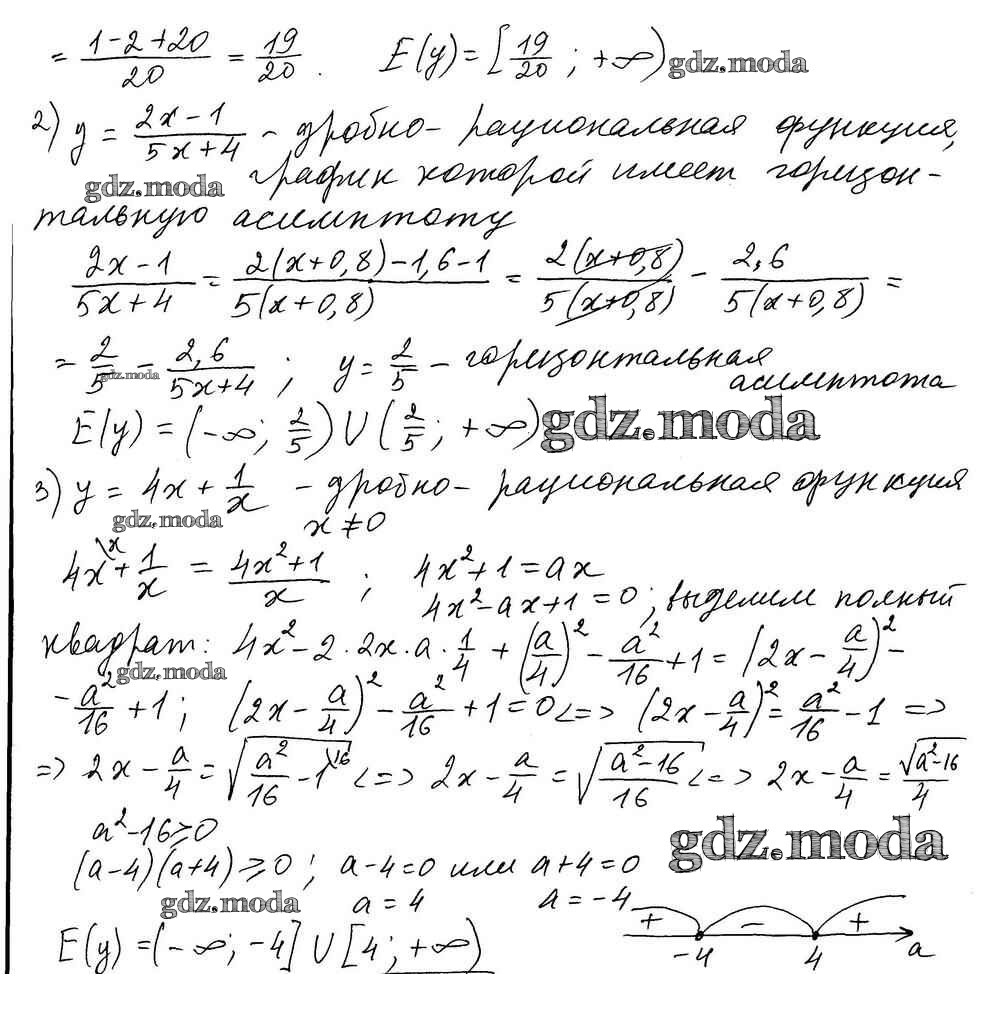 = (1-2+20)/20 = 19/20. E(y)=[19/20; +∞) gdz.moda
2) y = (2x-1)/(5x+4) - дробно-рациональная функция,
gdz.moda график которой имеет горизон-
тальную асимптоту
(2x-1)/(5x+4) = (2(x+0,8)-1,6-1)/(5(x+0,8)) = (2(x+0,8))/(5(x+0,8)) - 2,6/(5(x+0,8)) =
= 2/5 - 2,6/(5x+4); y = 2/5 - горизонтальная
gdz.moda
асимптота
E(y) = (-∞; 2/5) U (2/5; +∞) gdz.moda
3) y = 4x + 1/x - дробно-рациональная функция
gdz.moda x ≠ 0
4x\x + 1/x = (4x²+1)/x ; 4x²+1=ax
4x²-ax+1=0; выделим полный
квадрат: 4x²-2·2x·a·1/4 + (a/4)² - a²/16 + 1 = (2x - a/4)² -
gdz.moda
- a²/16 + 1; (2x - a/4)² - a²/16 + 1 = 0 <=> (2x - a/4)² = a²/16 - 1 =>
=> 2x - a/4 = √(a²/16 - 1\16) <=> 2x - a/4 = √((a²-16)/16) <=> 2x - a/4 = √(a²-16)/4
a²-16≥0
gdz.moda
(a-4)(a+4)≥0; a-4=0 или a+4=0
gdz.moda a = 4 a = -4
+ - +
E(y) = (-∞; -4] U [4; +∞)
-4 4 a